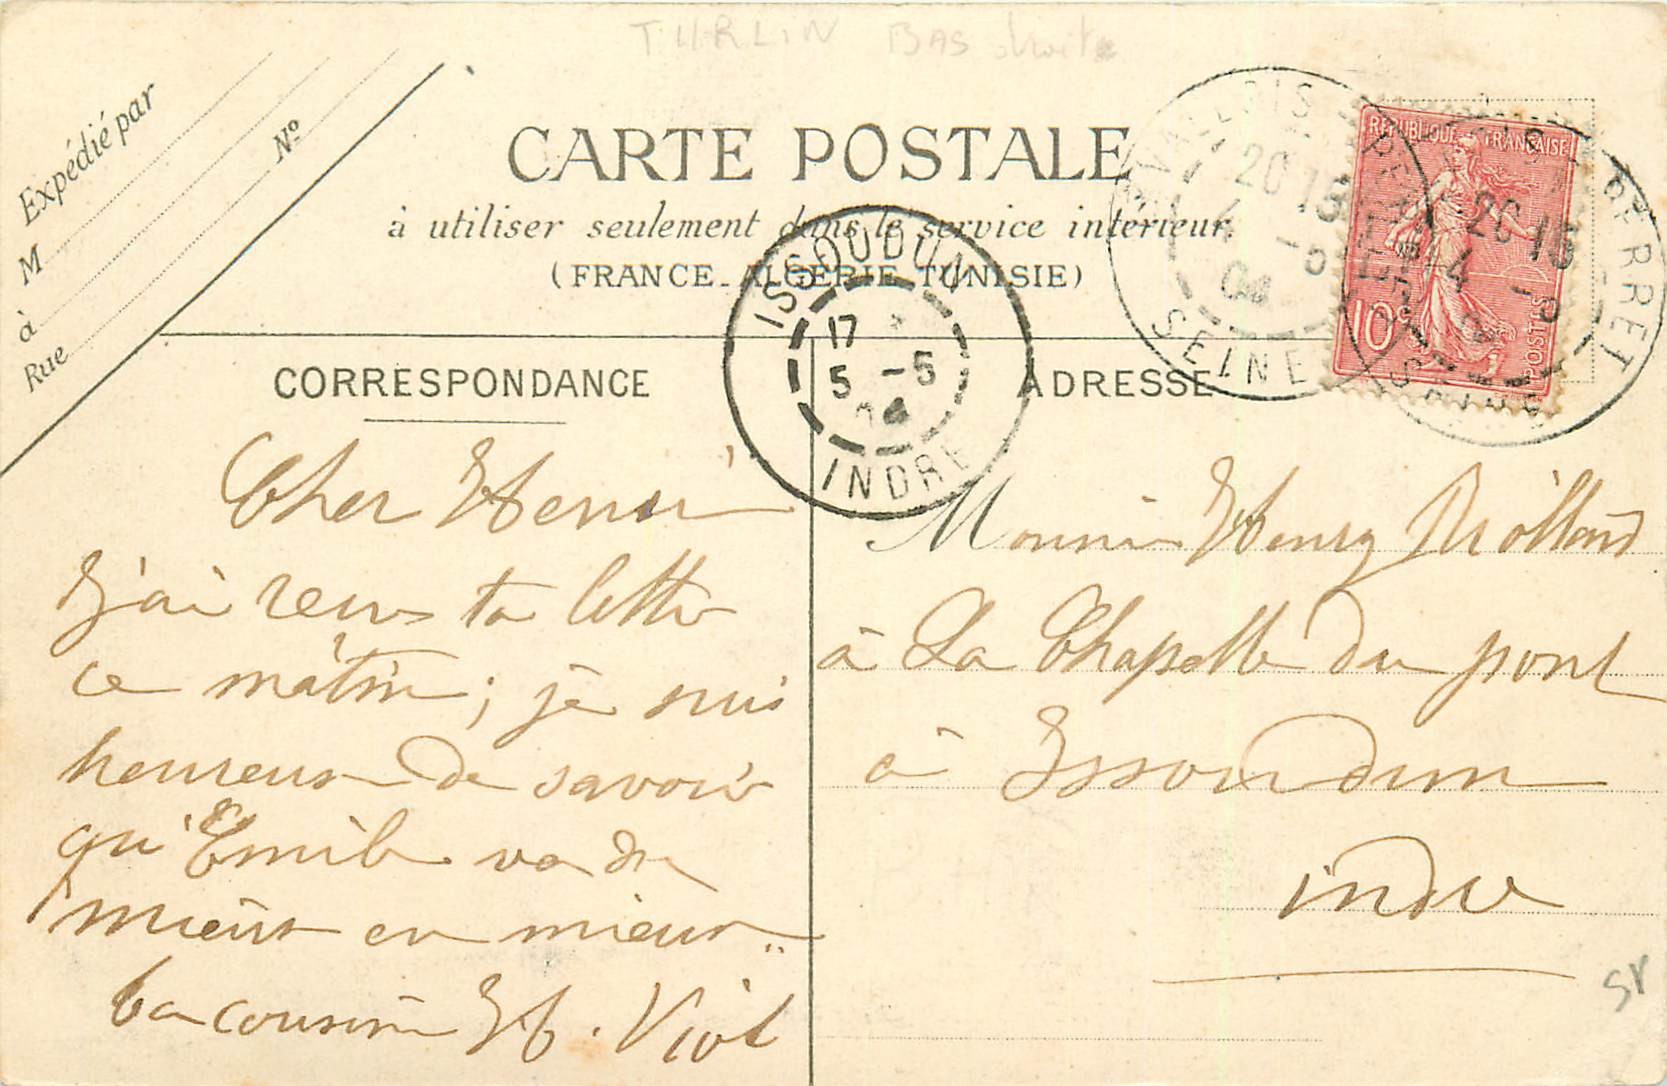 TURLIN BAS droite
Expédié par
M
à
Rue
Nº
CARTE POSTALE
à utiliser seulement dans le service intérieur
(FRANCE_ALGÉRIE_TUNISIE)
LEVALLOIS-PERRET
20 15
4 -5
04
SEINE
20 15
4 -5
PERRET
SEINE
REPUBLIQUE FRANÇAISE
10c
POSTES
ISSOUDUN
17
5 -5
04
INDRE
CORRESPONDANCE
Cher Henri
J'ai reçu ta lettre
ce mâtin; je suis
heureux de savoir
qu'Emile va de
mieux en mieux
ta cousine H. Viot
ADRESSE
Monsieur Henry
à La Chapelle du pont
à Issoudun
indre
SR